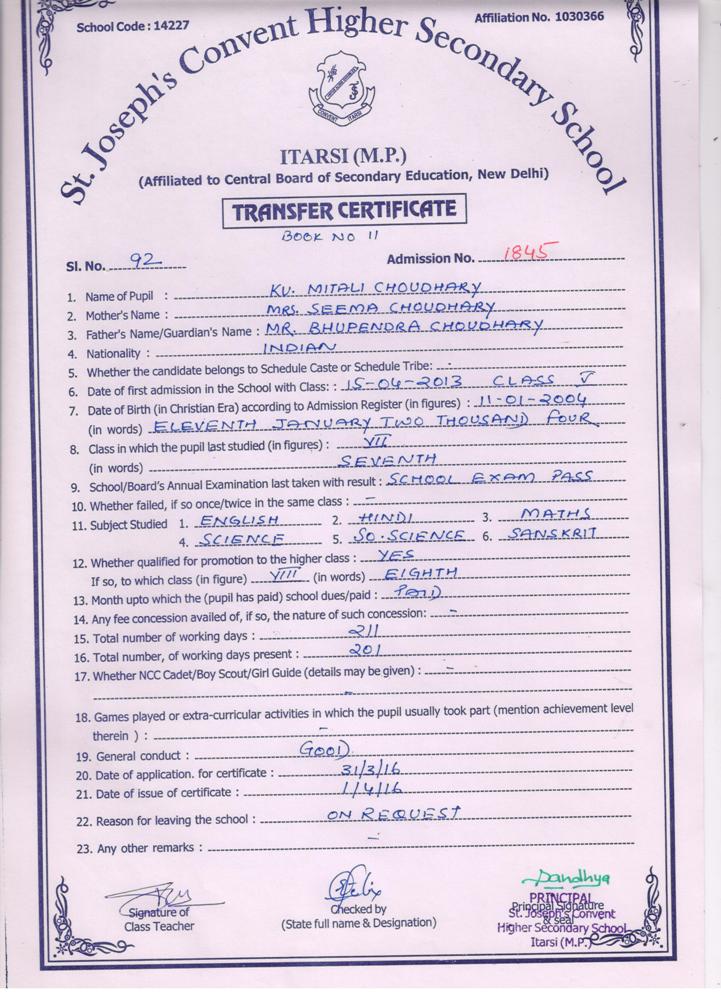 School Code : 14227
Affiliation No. 1030366
St. Joseph's Convent Higher Secondary School
CONVENT ITARSI
ITARSI (M.P.)
(Affiliated to Central Board of Secondary Education, New Delhi)
TRANSFER CERTIFICATE
BOOK NO 11
Sl. No. 92 Admission No. 1845
1. Name of Pupil : KU. MITALI CHOUDHARY
2. Mother's Name : MRS. SEEMA CHOUDHARY
3. Father's Name/Guardian's Name : MR. BHUPENDRA CHOUDHARY
4. Nationality : INDIAN
5. Whether the candidate belongs to Schedule Caste or Schedule Tribe: -
6. Date of first admission in the School with Class: : 15-04-2013 CLASS V
7. Date of Birth (in Christian Era) according to Admission Register (in figures) : 11-01-2004
(in words) ELEVENTH JANUARY TWO THOUSAND FOUR
8. Class in which the pupil last studied (in figures) : VII
(in words) SEVENTH
9. School/Board's Annual Examination last taken with result : SCHOOL EXAM PASS
10. Whether failed, if so once/twice in the same class : -
11. Subject Studied 1. ENGLISH 2. HINDI 3. MATHS
4. SCIENCE 5. SO.SCIENCE 6. SANSKRIT
12. Whether qualified for promotion to the higher class : YES
If so, to which class (in figure) VIII (in words) EIGHTH
13. Month upto which the (pupil has paid) school dues/paid : PAID
14. Any fee concession availed of, if so, the nature of such concession: -
15. Total number of working days : 211
16. Total number, of working days present : 201
17. Whether NCC Cadet/Boy Scout/Girl Guide (details may be given) : -
-
18. Games played or extra-curricular activities in which the pupil usually took part (mention achievement level
therein ) : -
19. General conduct : GOOD
20. Date of application. for certificate : 31/3/16
21. Date of issue of certificate : 1/4/16
22. Reason for leaving the school : ON REQUEST
23. Any other remarks : -
Sandhya
Signature of
Class Teacher
Checked by
(State full name & Designation)
PRINCIPAL
Principal Signature
St. Joseph's Convent
& seal
Higher Secondary School
Itarsi (M.P.)